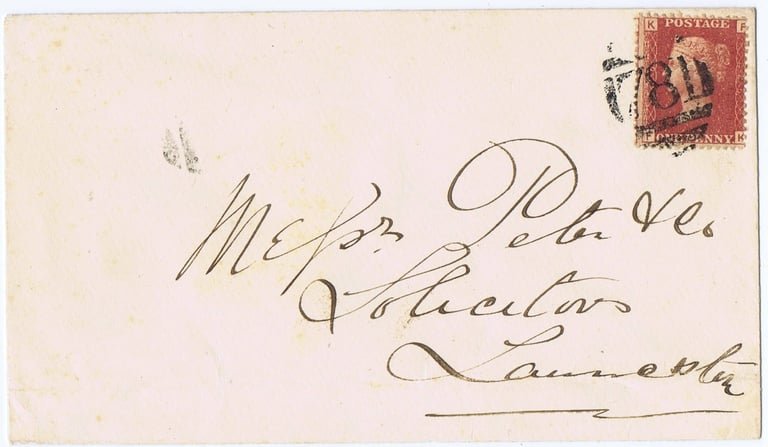 K POSTAGE F
81
F ONE PENNY K
Messrs Peter & Co
Solicitors
Launceston